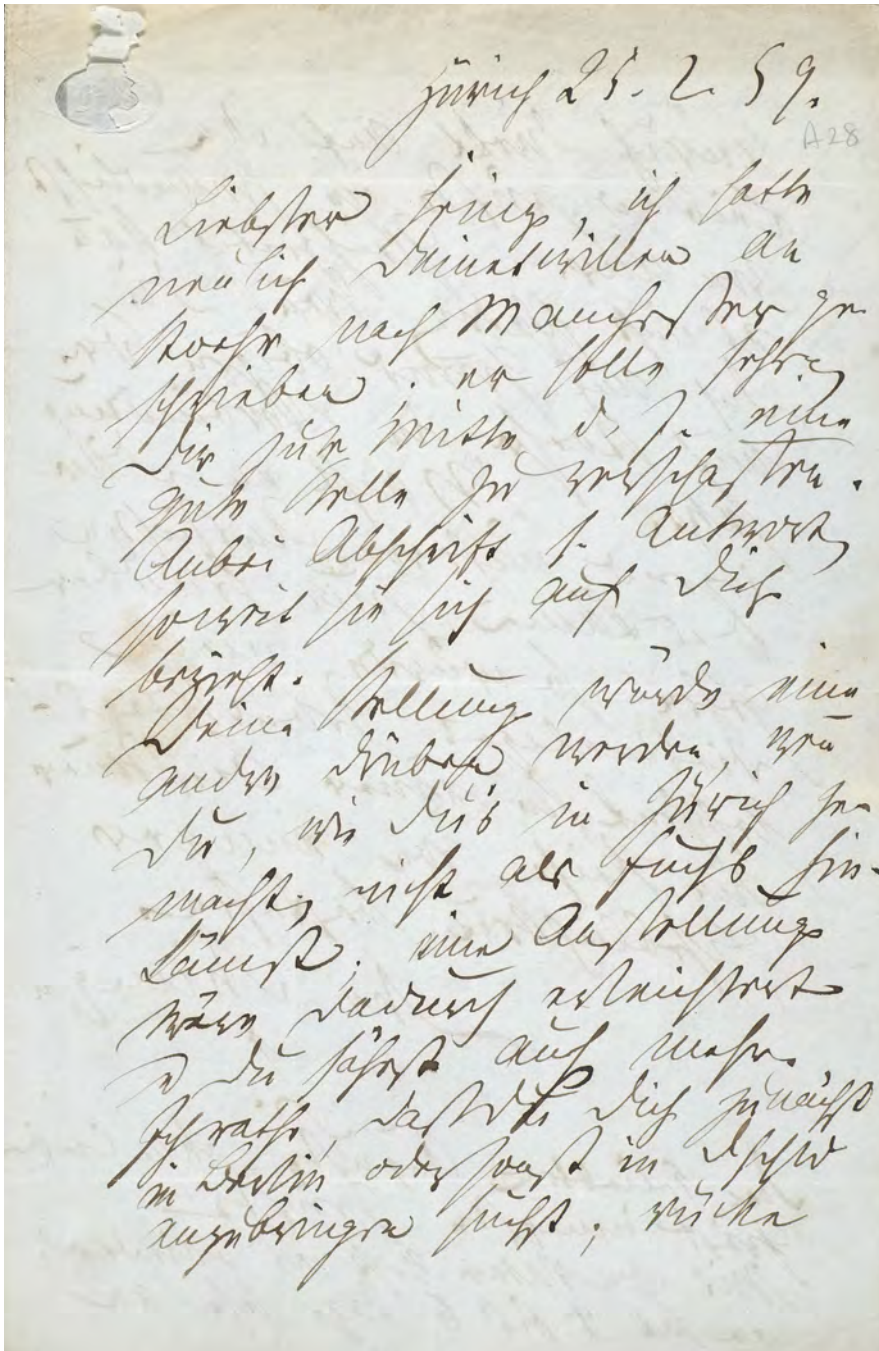 Zürich 25. 2. 59.
A28
Liebster Heinz, ich hatte
neulich Deinetwillen an
nach Manchester ge-
schrieben; er solle sehen,
Dir für Mitte d. J. eine
gute Stelle zu verschaffen.
Anbei Abschrift s. Antwort,
soweit sie sich auf Dich
bezieht.
Deine Stellung würde eine
andre drüben werden, wen̄
Du, wie Du's in Zürich ge-
macht, nicht als Fuchs hin-
kämst; eine Anstellung
wäre dadurch erleichtert
u Du sähest auch mehr.
Ich rathe, daß Du Dich zunächst
in Berlin oder sonst in Dschld
anzubringen suchst; rücke